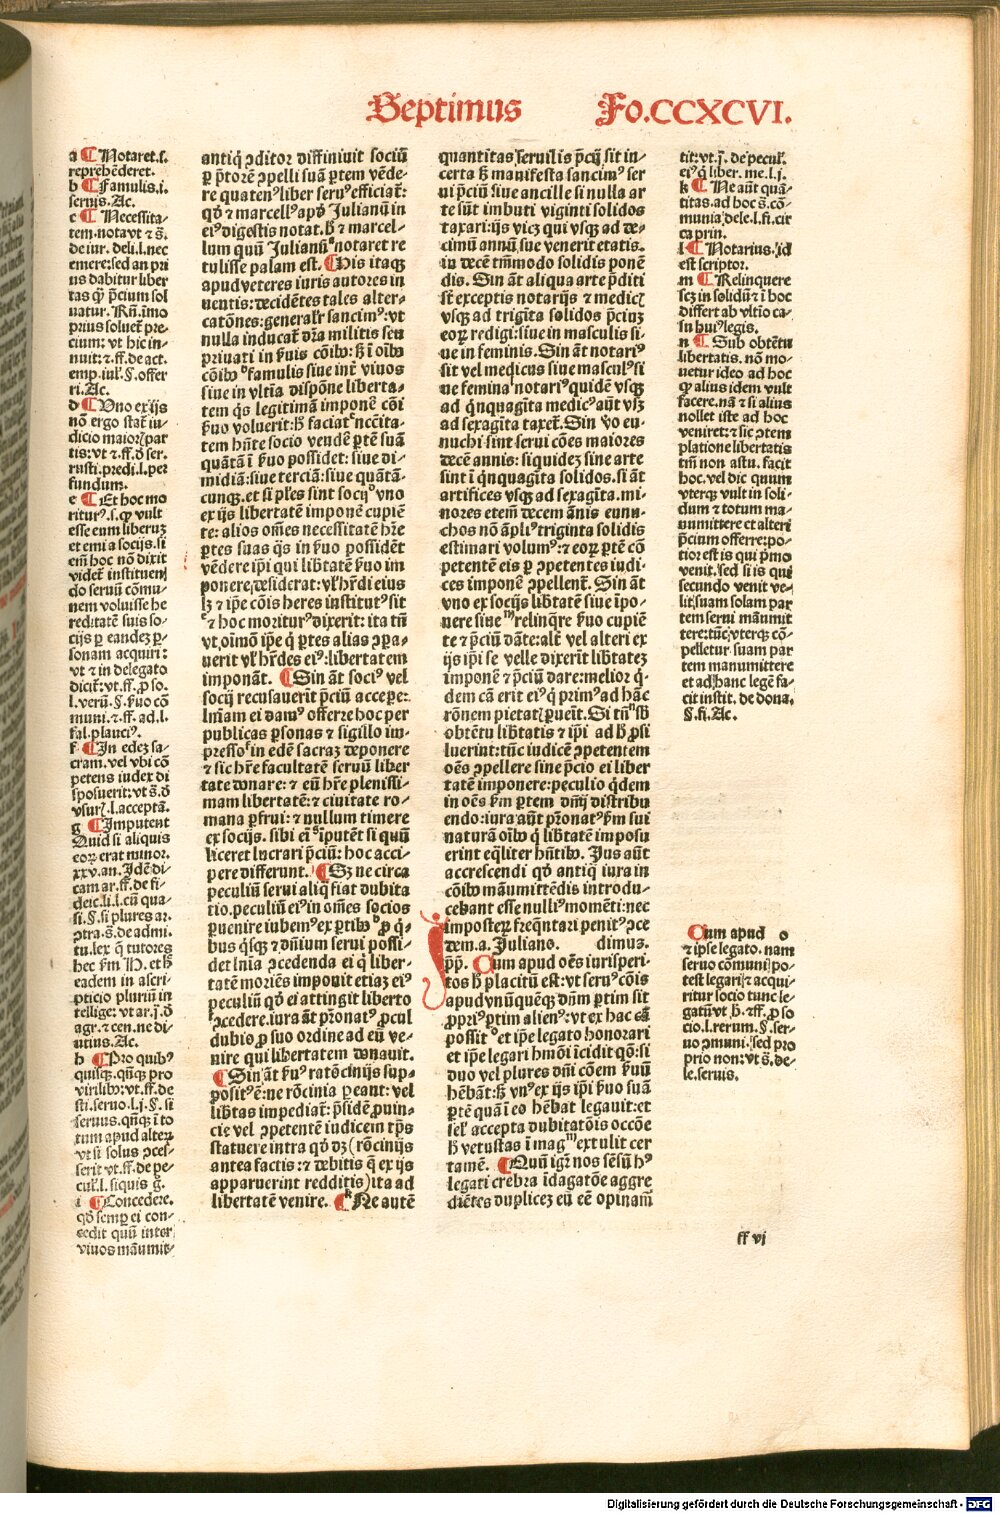 Septimus Fo.CCXCVI.
a ¶ Notaret.s.
reprehēderet.
b ¶ Famulis.i.
seruis. Ac.
c ¶ Necessita-
tem. notavt ⁊ s̄.
de iur. deli.l.nec
emere: sed an pri
us dabitur liber
tas q̄ȝ p̄cium sol
uatur. Rn̄.īmo
prius soluet pre-
cium: vt hic in-
nuit: ⁊ ff. de act.
emp. iul̓. §. offer
ri. Ac.
d ¶ Vno ex ijs
nō ergo stat̄ iu-
dicio maior̄ par
tis: vt ⁊ ff. d̄ ser.
rusti. predi. l. per
fundum.
e ¶ Et hoc mo
ritur̓. s. q̄ vult
esse eum liberuȝ
et emi a socijs. si
em̄ hoc nō dixit
videt̄ instituen
do seruū cōmu-
nem voluisse he
reditatē suis so-
cijs p̱ eandeȝ p̱-
sonam acquiri:
vt ⁊ in delegato
dicit̄: vt. ff. ꝓ so.
l. verū. §. ꝟuo cō
muni. ⁊ ff. ad. l.
fal. plauci̓.
f ¶ In edeȝ sa-
cram. vel vbi cō
petens iudex di
sposuerit: vt s̄. d̄
vsur̄. l. acceptā.
g ¶ Imputent
Quid si aliquis
eoꝝ erat minor.
xxv. an. Idē di-
cam ar. ff. de fi-
deic. li. l. cū qua-
si. §. si plures ar.
ꝯtra. s̄. de admi.
tu. lex q̄ tutores
hec ẜm M. et h̄
eadem in ascri-
pticio pluriū in
tellige: vt ar. j. d̄
agr. ⁊ cen. ne di-
utius. Ac.
h ¶ Pro quib̓
quisqȝ. qn̄qȝ pro
virilibꝰ: vt. ff. de
sti. seruo. l. j. §. si
seruus. qn̄qȝ ī to
tum apud alteꝝ
vt si solus ꝯces-
serit vt. ff. de pe-
cul̓. l. si quis ḡ.
i ¶ Concedere.
qd̄ semp̱ ei con-
cedit quū inter
viuos māumit-
antiq̓ ꝯditor diffiniuit sociū
p̱ p̄torē ꝯpelli suā p̱tem vēde-
re quaten̓ liber seru̓ efficiat̄:
qd̄ ⁊ marcell̓ apd̓ Julianū in
ei̓ digestis notat. h̄ ⁊ marcel-
lum quū Julianū ᵃnotaret re
tulisse palam est. ¶ His itaqȝ
apud veteres iuris autores in
uentis: decidētes tales alter-
catōnes: generalr̄ sancim̓: vt
nulla inducat̄ dr̄a militis seu
priuati in ꝟuis cōibꝰ: ꝫ ī oībꝰ
cōibꝰ ᵇfamulis siue int̄ viuos
siue in vltīa dispōne liberta-
tem q̓s legitimā imponē cōi
ꝟuo voluerit: h̄ faciat ᶜnccīta-
tem hn̄te socio vendē p̱tē suā
quātā ī ꝟuo possidet: siue di-
midiā: siue terciā: siue quātā-
cunqȝ. et si pl̓es sint socij ᵈvno
ex ijs libertatē imponē cupiē
te: alios om̄es necessitatē hr̄e
p̱tes suas q̄s in ꝟuo possidēt
vēdere ip̄i qui lib̄tatē ꝟuo im
ponere desiderat: vl̓ hr̄di eius
lȝ ⁊ ip̄e cōis heres institut̓ sit
ᵉ⁊ hoc moritur̓ dixerit: ita tn̄
vt oīmō ip̄e q̓ p̱tes alias ꝯpa-
uerit vl̓ hr̄des ei̓: libertatem
imponāt. ¶ Sin āt soci̓ vel
socij recusauerit p̄ciū acceꝑe:
ln̄iam ei dam̓ offerre hoc per
publicas p̱sonas ⁊ sigillo im-
presso ᶠin edē sacraȝ deponere
⁊ sic hr̄e facultatē seruū liber
tate donare: ⁊ eū hr̄e plenissi-
mam libertatē: ⁊ ciuitate ro-
mana p̱frui: ⁊ nullum timere
ex socijs. sibi eī ᵍiputēt si quū
liceret lucrari p̄ciū: hoc acci-
pere differunt. ¶ Sȝ ne circa
peculiū serui aliq̄ fiat dubita
tio. peculiū ei̓ in om̄es socios
p̱uenire iubem̓ ex p̱tibꝰ ʰꝓ q̓-
bus q̓sqȝ ⁊ dn̄ium serui possi-
det ln̄ia ꝯcedenda ei q̓ liber-
tatē moriēs imponit etiaȝ ei̓
peculiū qd̄ ei attingit liberto
ⁱꝯcedere. iura āt pr̄onat̓ ꝓcul
dubio ꝓ suo ordine ad eū ve-
nire qui libertatem donauit.
¶ Sin āt ꝟu̓ ratōcinijs sup-
posit̓ ē: ne rōcinia p̱eant: vel
lib̄tas impediat̄: p̄sidē ꝓuin-
cie vel ꝯpetentē iudicem tp̄s
statuere intra qd̄ dȝ (rōcinijs
antea factis: ⁊ debitis q̄ ex ijs
apparuerint redditis) ita ad
libertatē venire. ¶ ᵏNe autē
quantitas seruilis p̄cij sit in-
certa ꝫ manifesta sancim̓ ser
ui p̄cium siue ancille si nulla ar
te sūt imbuti viginti solidos
taxari: ijs vicȝ qui vsqȝ ad de-
cimū annū sue venerit etatis.
in decē tm̄modo solidis ponē
dis. Sin āt aliqua arte p̄diti
st̄ exceptis notarijs ⁊ medic̄
vsqȝ ad trigīta solidos p̄ciuȝ
eoꝝ redigi: siue in masculis si-
ue in feminis. Sin āt ˡnotari̓
sit vel medicus siue mascul̓ si
ue femina notari̓ quidē vsqȝ
ad q̓nquagīta medic̓ aūt vsȝ
ad sexagīta taxet̄. Sin v̓o eu-
nuchi sint serui cōes maiores
decē annis: siquidez sine arte
sint ī q̓nquagīta solidos. si āt
artifices vsqȝ ad sexagīta. mi-
nores etem̄ decem ānis eunu-
chos nō āpli̓ triginta solidis
estimari volum̓: ⁊ eoꝝ p̱tē cō
petentē eis p̱ ꝯpetentes iudi-
ces imponē ꝯpellent̄. Sin āt
vno ex socijs lib̄tatē siue īpo-
nere siue ᵐrelinq̄re ꝟuo cupiē
te ⁊ p̄ciū dāte: alt̄ vel alteri ex
ijs ip̄i se velle dixerit lib̄tateȝ
imponē ⁊ p̄ciū dare: melior q̓-
dem cā erit ei̓ q̓ prim̓ ad hāc
rōnem pietat̄ p̱ueit̄. Si tn̄ ⁿsb̄
obtētu lib̄tatis ⁊ ip̄i ad h̄ ꝓsi
luerint: tūc iudicē ꝯpetentem
oēs ꝯpellere sine p̄cio ei liber
tatē imponere: peculio q̓dem
in oēs ẜm p̱tem dn̄ij distribu
endo: iura aūt pr̄onat̓ ẜm sui
naturā oībꝰ q̓ lib̄tatē imposu
erint eq̄liter hn̄tibꝰ. Jus aūt
accrescendi qd̄ antiq̓ iura in
cōibꝰ māumittēdis introdu-
cebant esse nulli̓ momēti: nec
imposteꝝ freq̄ntari penit̓ ꝯce
dem. a. Juliano. dimus.
pp̄. Cum apud oēs iurisperi-
tos h̄ placitū est: vt seru̓ cōis
apud vnūquēqȝ dn̄m p̱tim sit
ꝓpri̓ p̱tim alien̓: vt ex hac cā
possit ᵒet ip̄e legato honorari
et ip̄e legari hmōi īcidit qō: si
duo vel plures dn̄i cōem ꝟuū
hēbāt: ꝫ vn̓ ex ijs ip̄i ꝟuo suā
p̱tē quā ī eo hēbat legauit: et
sel̓ accepta dubitatōis occōe
h̄ vetustas ī mag̓ extulit cer
tamē. ¶ Quū igr̄ nos sēsū h̓
legati crebra īdagatōe aggre
diētes dupliceȝ eū eē opinam̄
tit: vt. j. de pecul̓.
ei̓ q̓ liber. me. l. j.
k ¶ Ne aūt quā-
titas. ad hoc s̄. cō-
munia dele. l. fi. cir
ca prin.
l ¶ Notarius. id
est scriptor.
m ¶ Relinquere
scȝ in solidū ⁊ ī hoc
differt ab vltīo ca-
su hui̓ legis.
n ¶ Sub obtētu
libertatis. nō mo-
uetur ideo ad hoc
qȝ alius idem vult
facere. nā ⁊ si alius
nollet iste ad hoc
veniret: ⁊ sic ꝯtem
platione libertatis
tm̄ non astu. facit
hoc. vel dic quum
vterqȝ vult in soli-
dum ⁊ totum ma-
numittere et alteri
p̄cium offerre: po-
tior est is qui p̄mo
venit. sed si is qui
secundo venit ve-
lit suam solam par
tem serui māumit
tere: tūc vterqȝ cō-
pelletur suam par
tem manumittere
et ad hanc legē fa-
cit instit. de dona.
§. fi. Ac.
Cum apud o
⁊ ipse legato. nam
seruo cōmuni po-
test legari ⁊ acqui-
ritur socio tunc le-
gatū vt h̄. ⁊ ff. ꝓ so
cio. l. rerum. §. ser-
uo ꝯmuni. sed pro
prio non: vt s̄. de-
le. seruis.
ff vj
Digitalisierung gefördert durch die Deutsche Forschungsgemeinschaft - DFG